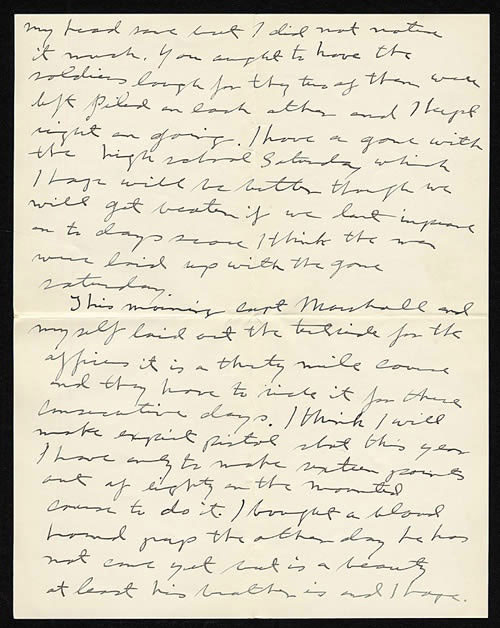 my head save but I did not notice
it much. You ought to have the
soldiers laugh for they two of them were
left piled on each other and I kept
right on going. I have a game with
the high school Saturday which
I hope will be better though we
will get beaten if we dont improve
on to days score I think the men
were laid up with the game
saturday.
This morning capt Marshall and
my self laid out the testride for the
officers it is a thirty mile course
and they have to ride it for three
consecutive days. I think I will
make expert pistol shot this year
I have only to make sixteen points
out of eighty on the mounted
course to do it. I bought a blood
hound pup the other day he has
not come yet but is a beauty
at least his brother is and I hope.